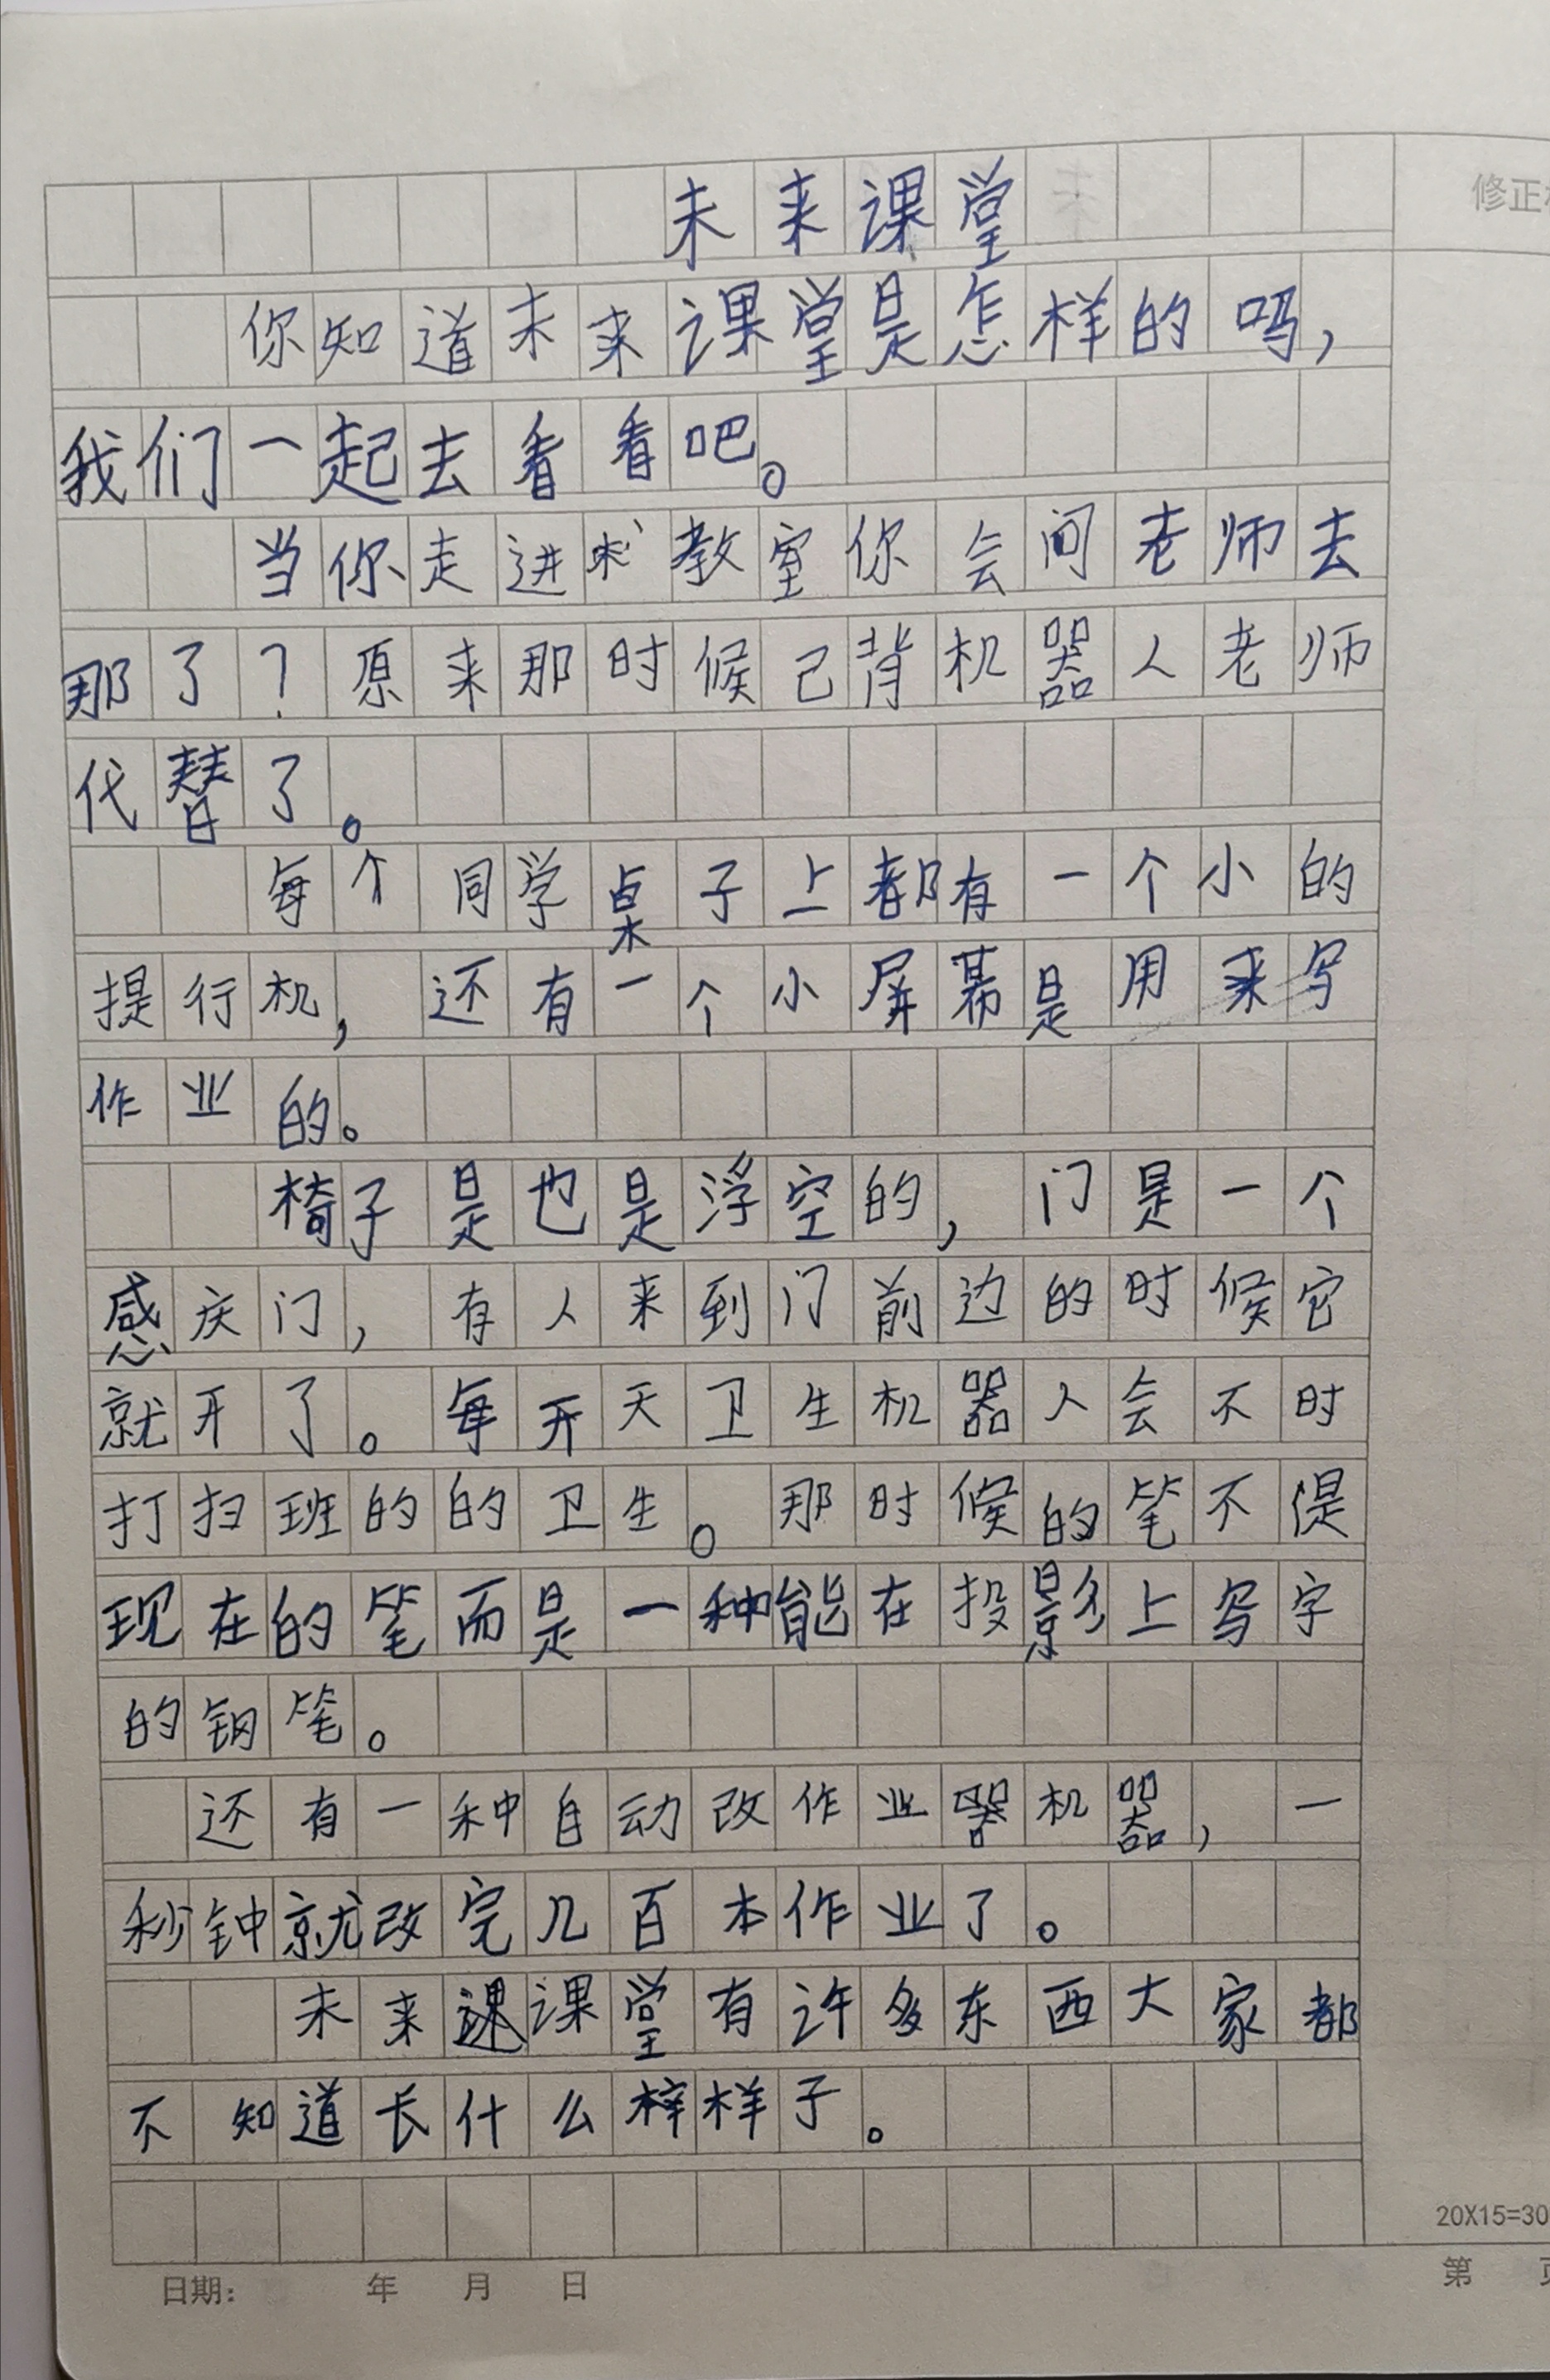 未来课堂
修正
你知道未来课堂是怎样的吗,
我们一起去看看吧。
当你走进教室你会问老师去
那了?原来那时候己背机器人老师
代替了。
每个同学桌子上都有一个小的
提行机,还有一个小屏幕是用来写
作业的。
椅子是也是浮空的,门是一个
感庆门,有人来到门前边的时候它
就开了。每开天卫生机器人会不时
打扫班的的卫生。那时候的笔不是
现在的笔而是一种能在投影上写字
的钢笔。
还有一种自动改作业器机器,一
秒钟就改完几百本作业了。
未来课课堂有许多东西大家都
不知道长什么梓样子。
20X15=30
日期: 年 月 日
第